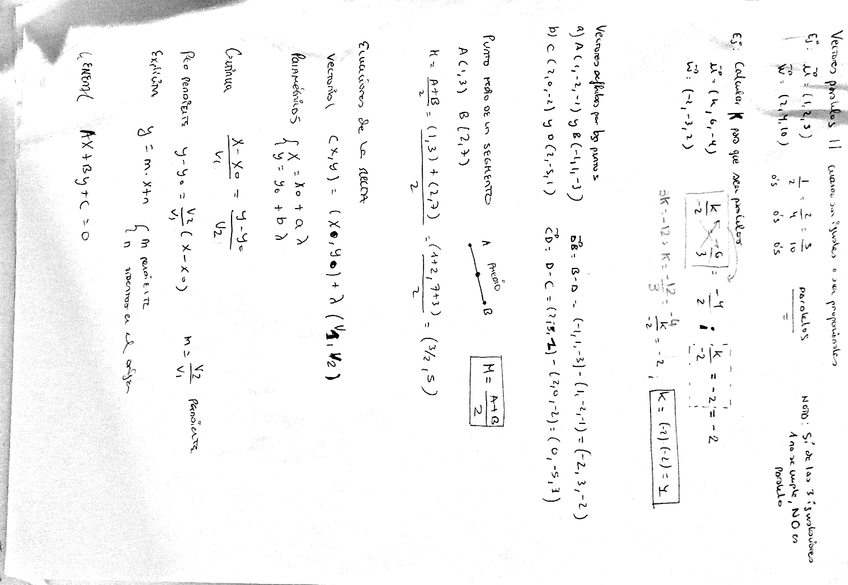 Vectores paralelos // cuando son iguales o son proporcionales
Ej: u = (1, 2, 5)
w = (2, 4, 10)
1/2 = 2/4 = 5/10 paralelos
0'5 0'5 0'5
NOTA: Si de las 3 igualdades
1 no se cumple, NO es
paralelo
Ej: Calcular K para que sean paralelos
u = (k, 6, -4)
w = (-2, -3, 2)
k/-2 = -6/3 = -4/2 ; k/-2 = -2 = -2
3k = -12 ; k = -12/3 = -4
k/-2 = -2 ; k = (-2)·(-2) = 4
Vectores definidos por dos puntos
a) A (1, -2, -1) y B (-1, 1, -3)
AB = B - A = (-1, 1, -3) - (1, -2, -1) = (-2, 3, -2)
b) C (2, 0, -2) y D (2, -5, 1)
CD = D - C = (2, -5, 1) - (2, 0, -2) = (0, -5, 3)
Punto medio de un segmento
A (1, 3) B (2, 7)
A PMEDIO B
M = A+B/2
M = A+B/2 = (1,3) + (2,7)/2 = (1+2, 7+3)/2 = (3/2, 5)
Ecuaciones de la recta
Vectorial (x, y) = (x0, y0) + λ (V1, V2)
Paramétricas { x = x0 + a λ
y = y0 + b λ
Continua x - x0/V1 = y - y0/V2
Pto pendiente y - y0 = V2/V1 (x - x0) m = V2/V1 pendiente
Explícita y = m·x+n { m pendiente
n ordenada en el origen
General AX + By + C = 0